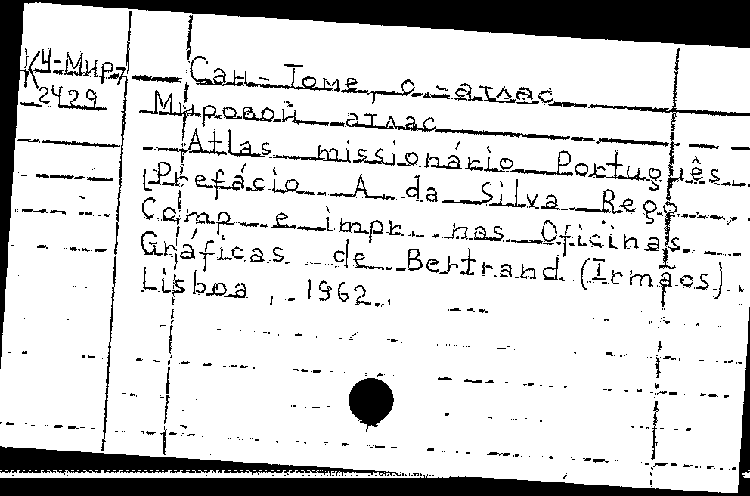 К4-Мир-
2429
Сан-Томе, о.-атлас
Мировой атлас
Atlas missionário Português.
[Prefácio A. da Silva Rego.
Comp. e impr. nas Oficinas
Gráficas de Bertrand (Irmãos).
Lisboa, 1962.